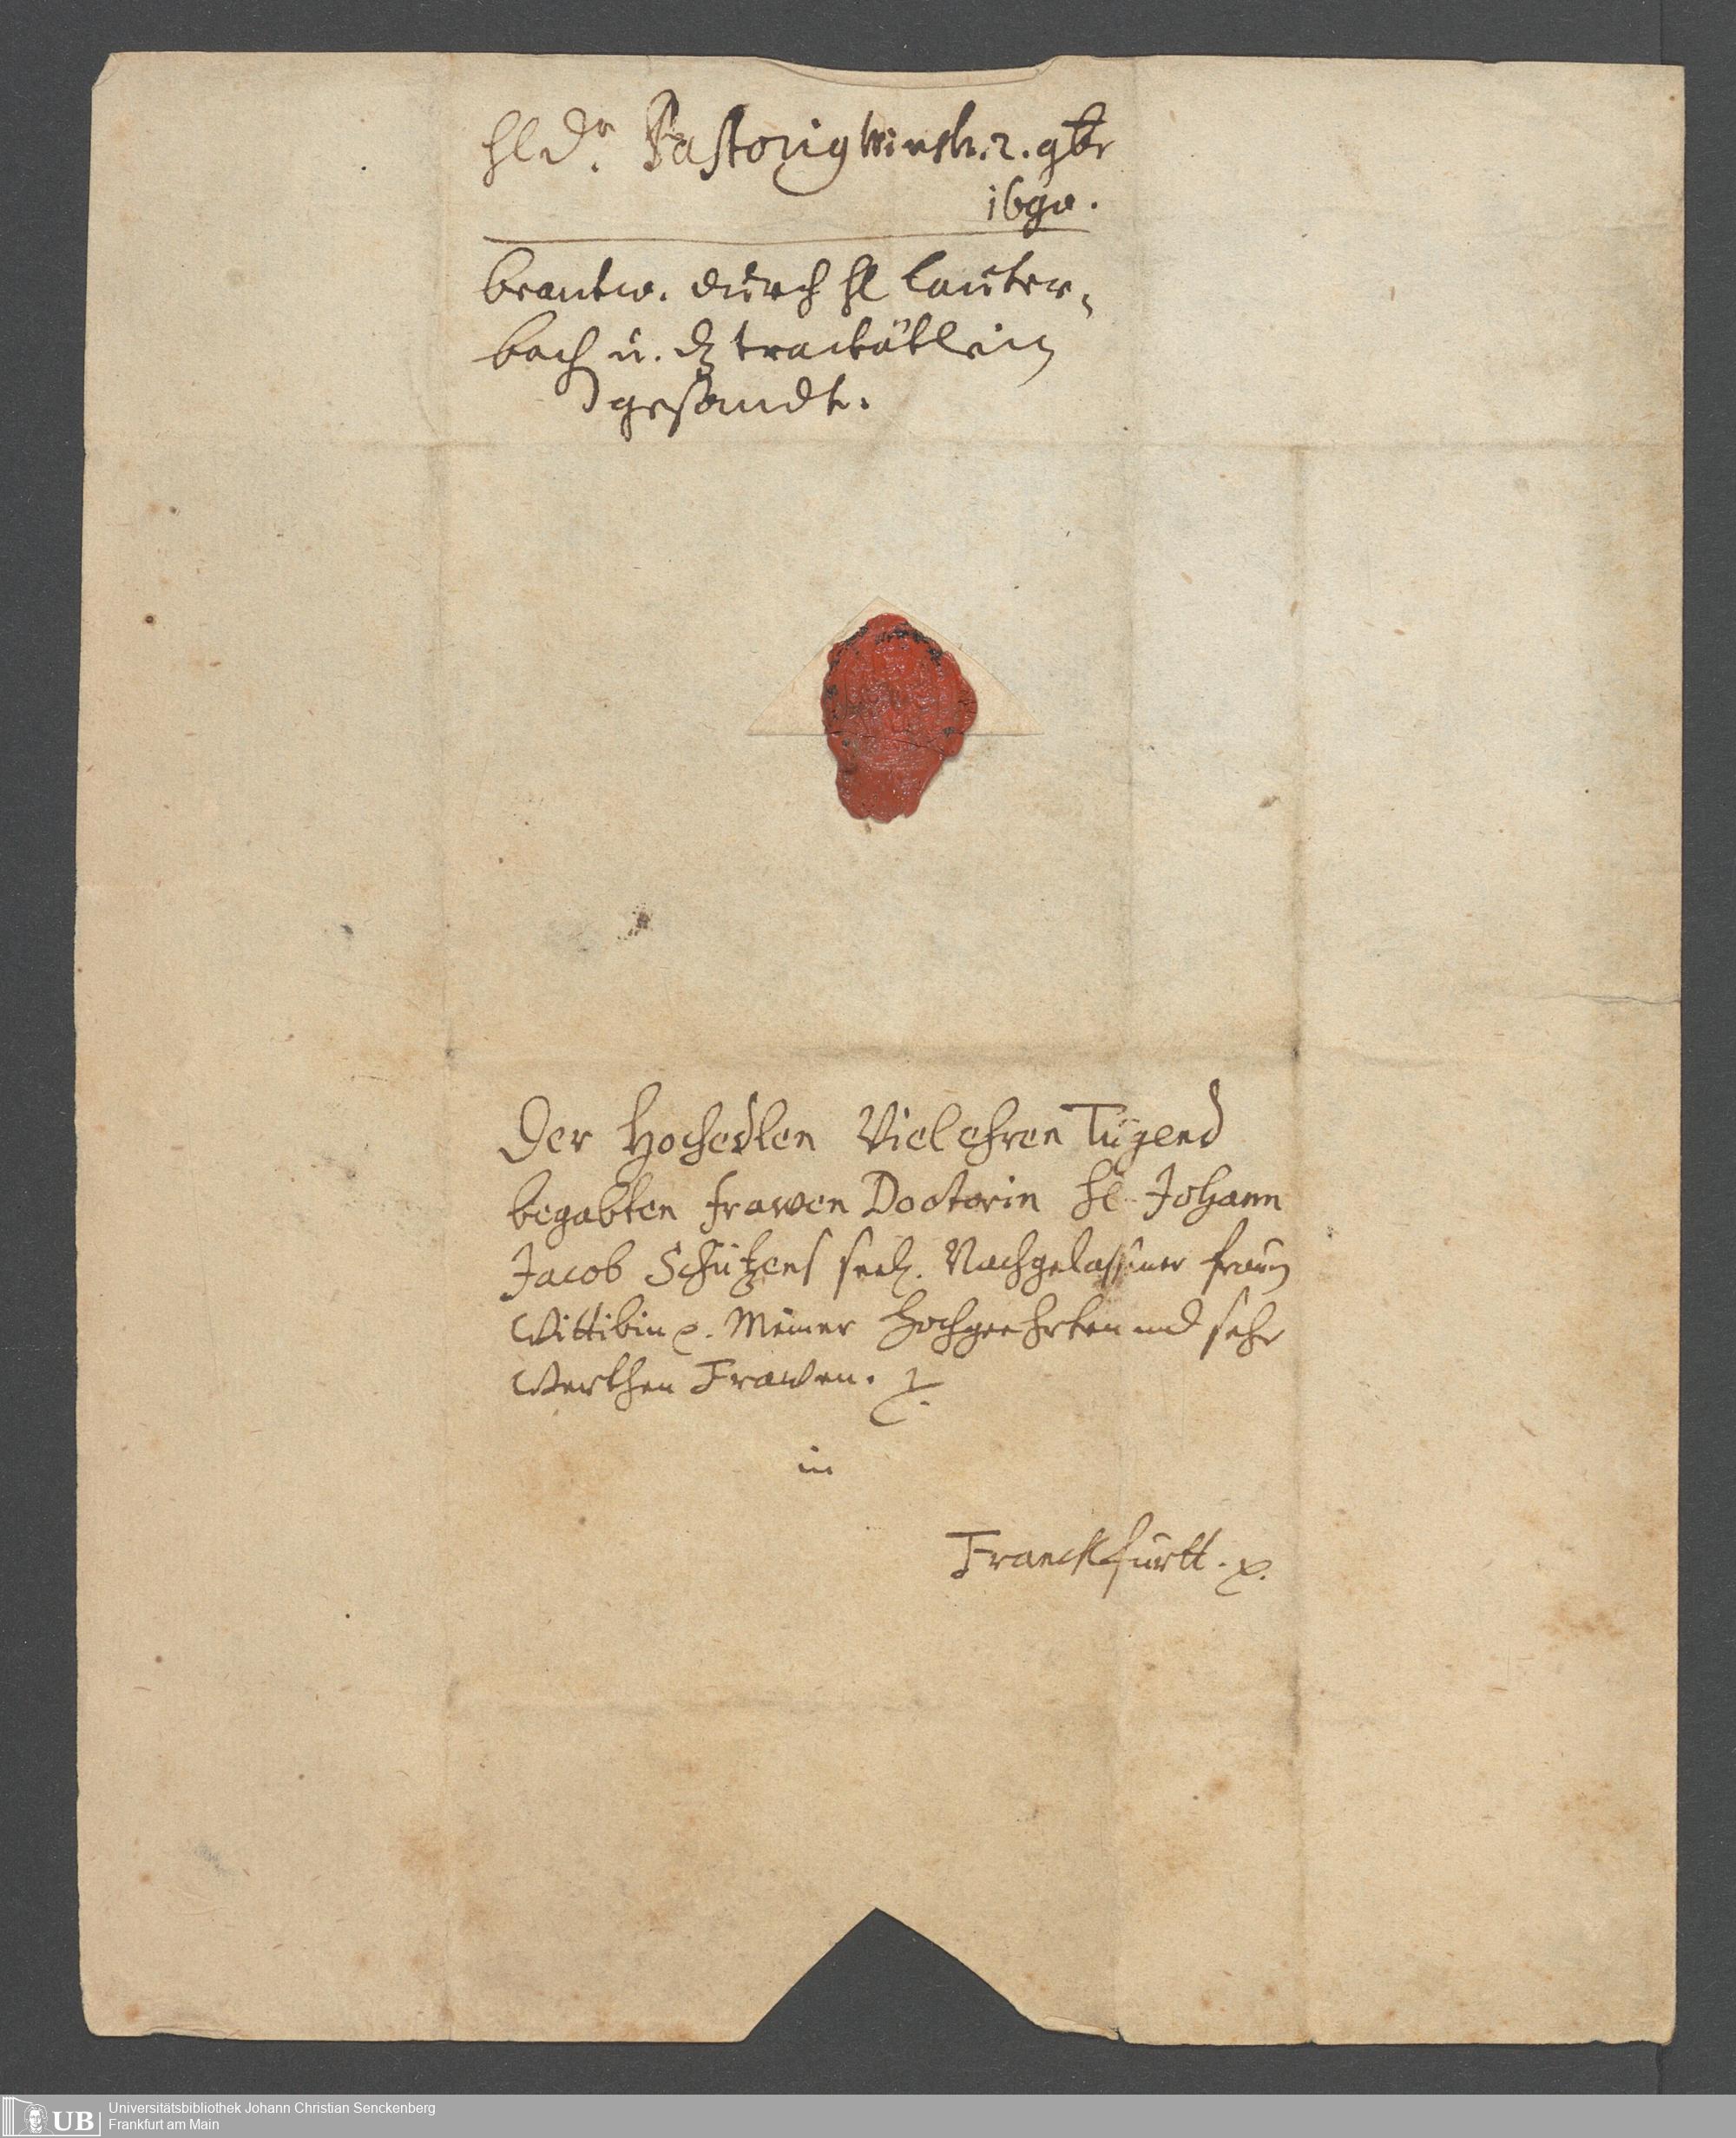 Hl Dr. Pastorig Winsh. 2. 9br
1690.
beantw. durch Hl Lauter-
bach u. dz tractätlein
gesandt.
Der Hochedlen Viel ehren Tugend
begabten Frawen Doctorin Hl. Johann
Jacob Schützens seel. Nachgelassener Frawen
Wittibin p. Meiner Hochgeehrten und sehr
Werthen Frawen.
in
Franckfurtt. p.
UB Universitätsbibliothek Johann Christian Senckenberg
Frankfurt am Main